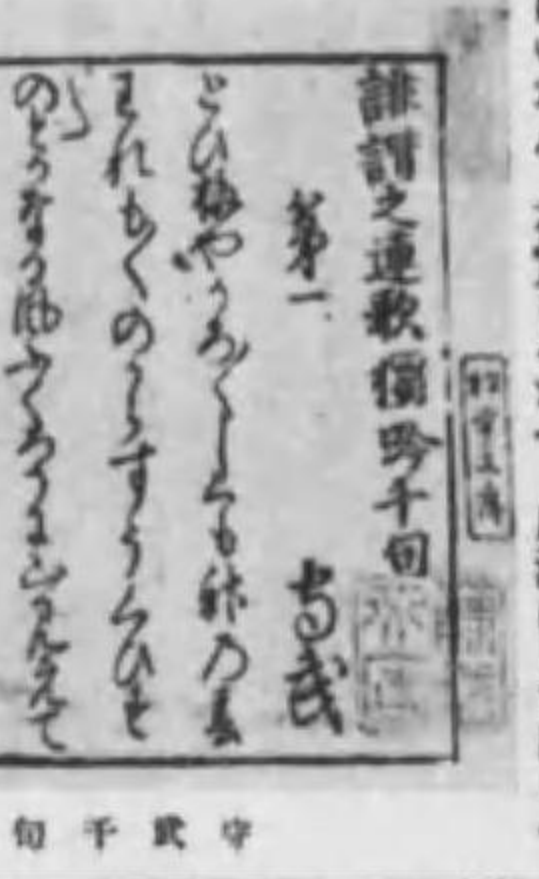 誹諧之連歌獨吟千句
第一
守武
とひ梅やかろ〲しくも神乃春
われも〱のからすうくひす
のとかなる風ふくろうに山みえて
守武千句